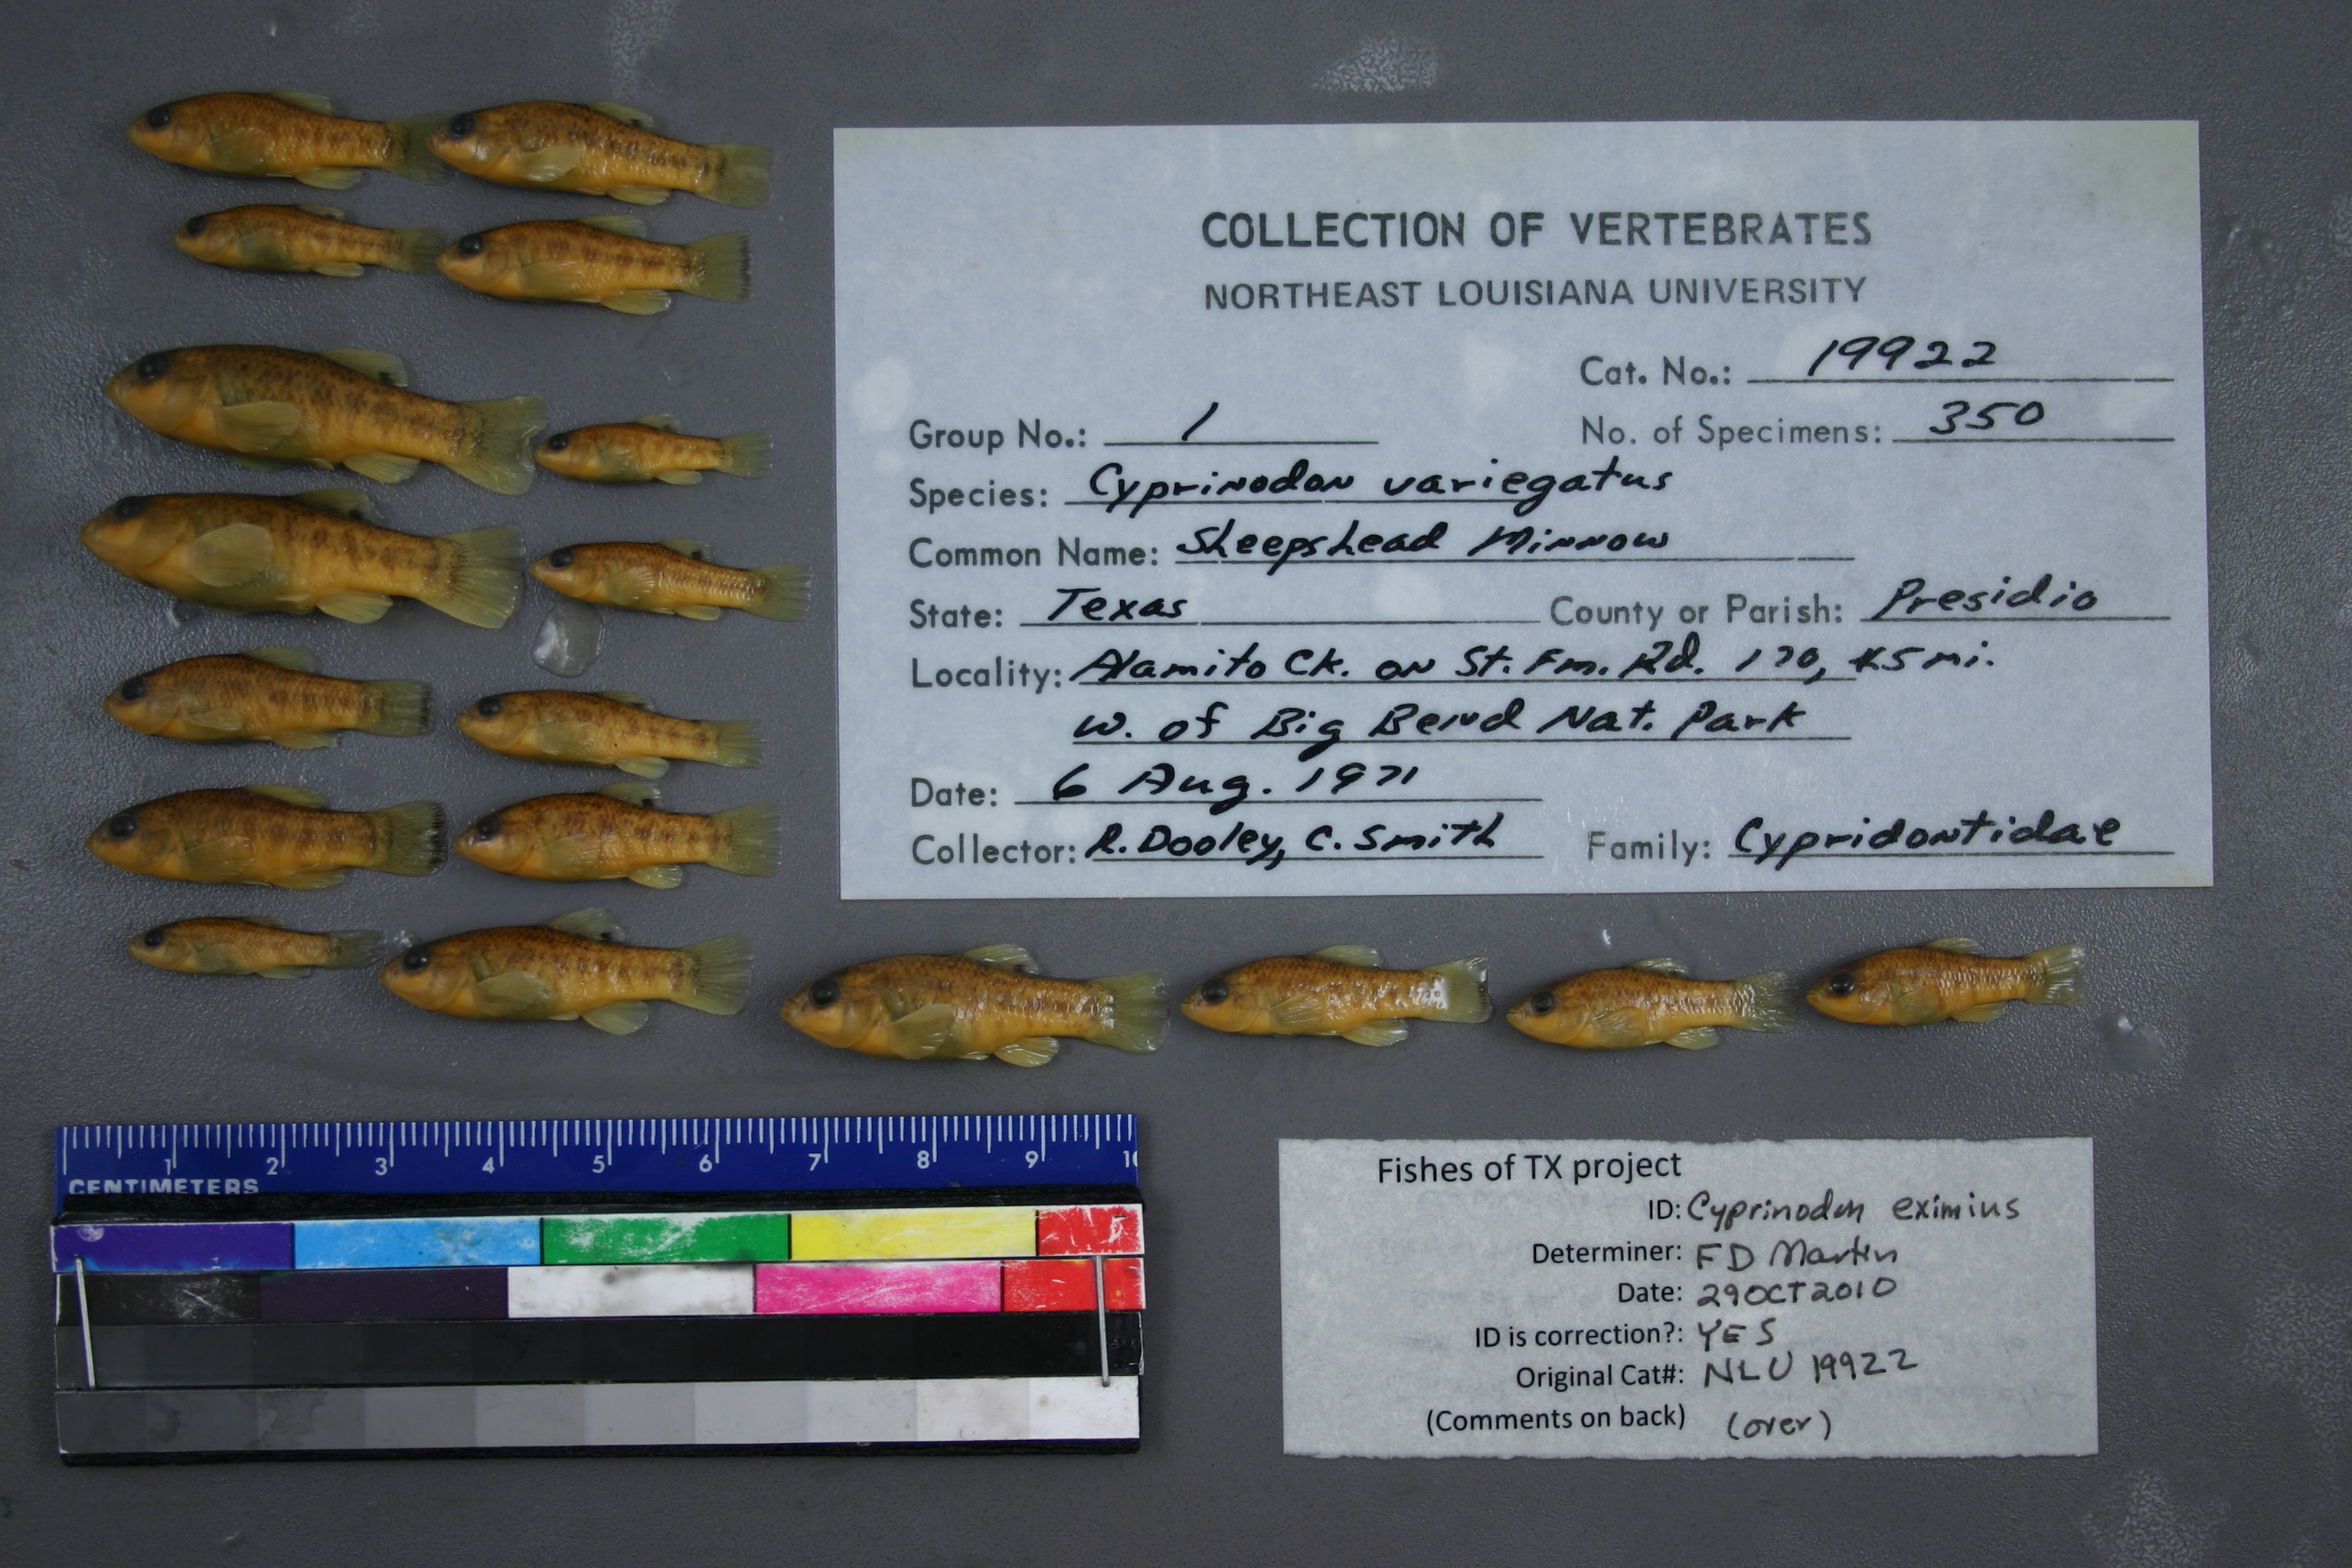 COLLECTION OF VERTEBRATES
NORTHEAST LOUISIANA UNIVERSITY
Cat. No.: 19922
Group No.: 1 No. of Specimens: 350
Species: Cyprinodon variegatus
Common Name: Sheepshead Minnow
State: Texas County or Parish: Presidio
Locality: Alamito Ck. on St. Fm. Rd. 170, 45 mi.
w. of Big Bend Nat. Park
Date: 6 Aug. 1971
Collector: R. Dooley, C. Smith Family: Cypridontidae
1 2 3 4 5 6 7 8 9
CENTIMETERS
Fishes of TX project
ID: Cyprinodon eximius
Determiner: FD Martin
Date: 29OCT2010
ID is correction?: YES
Original Cat#: NLU 19922
(Comments on back) (over)